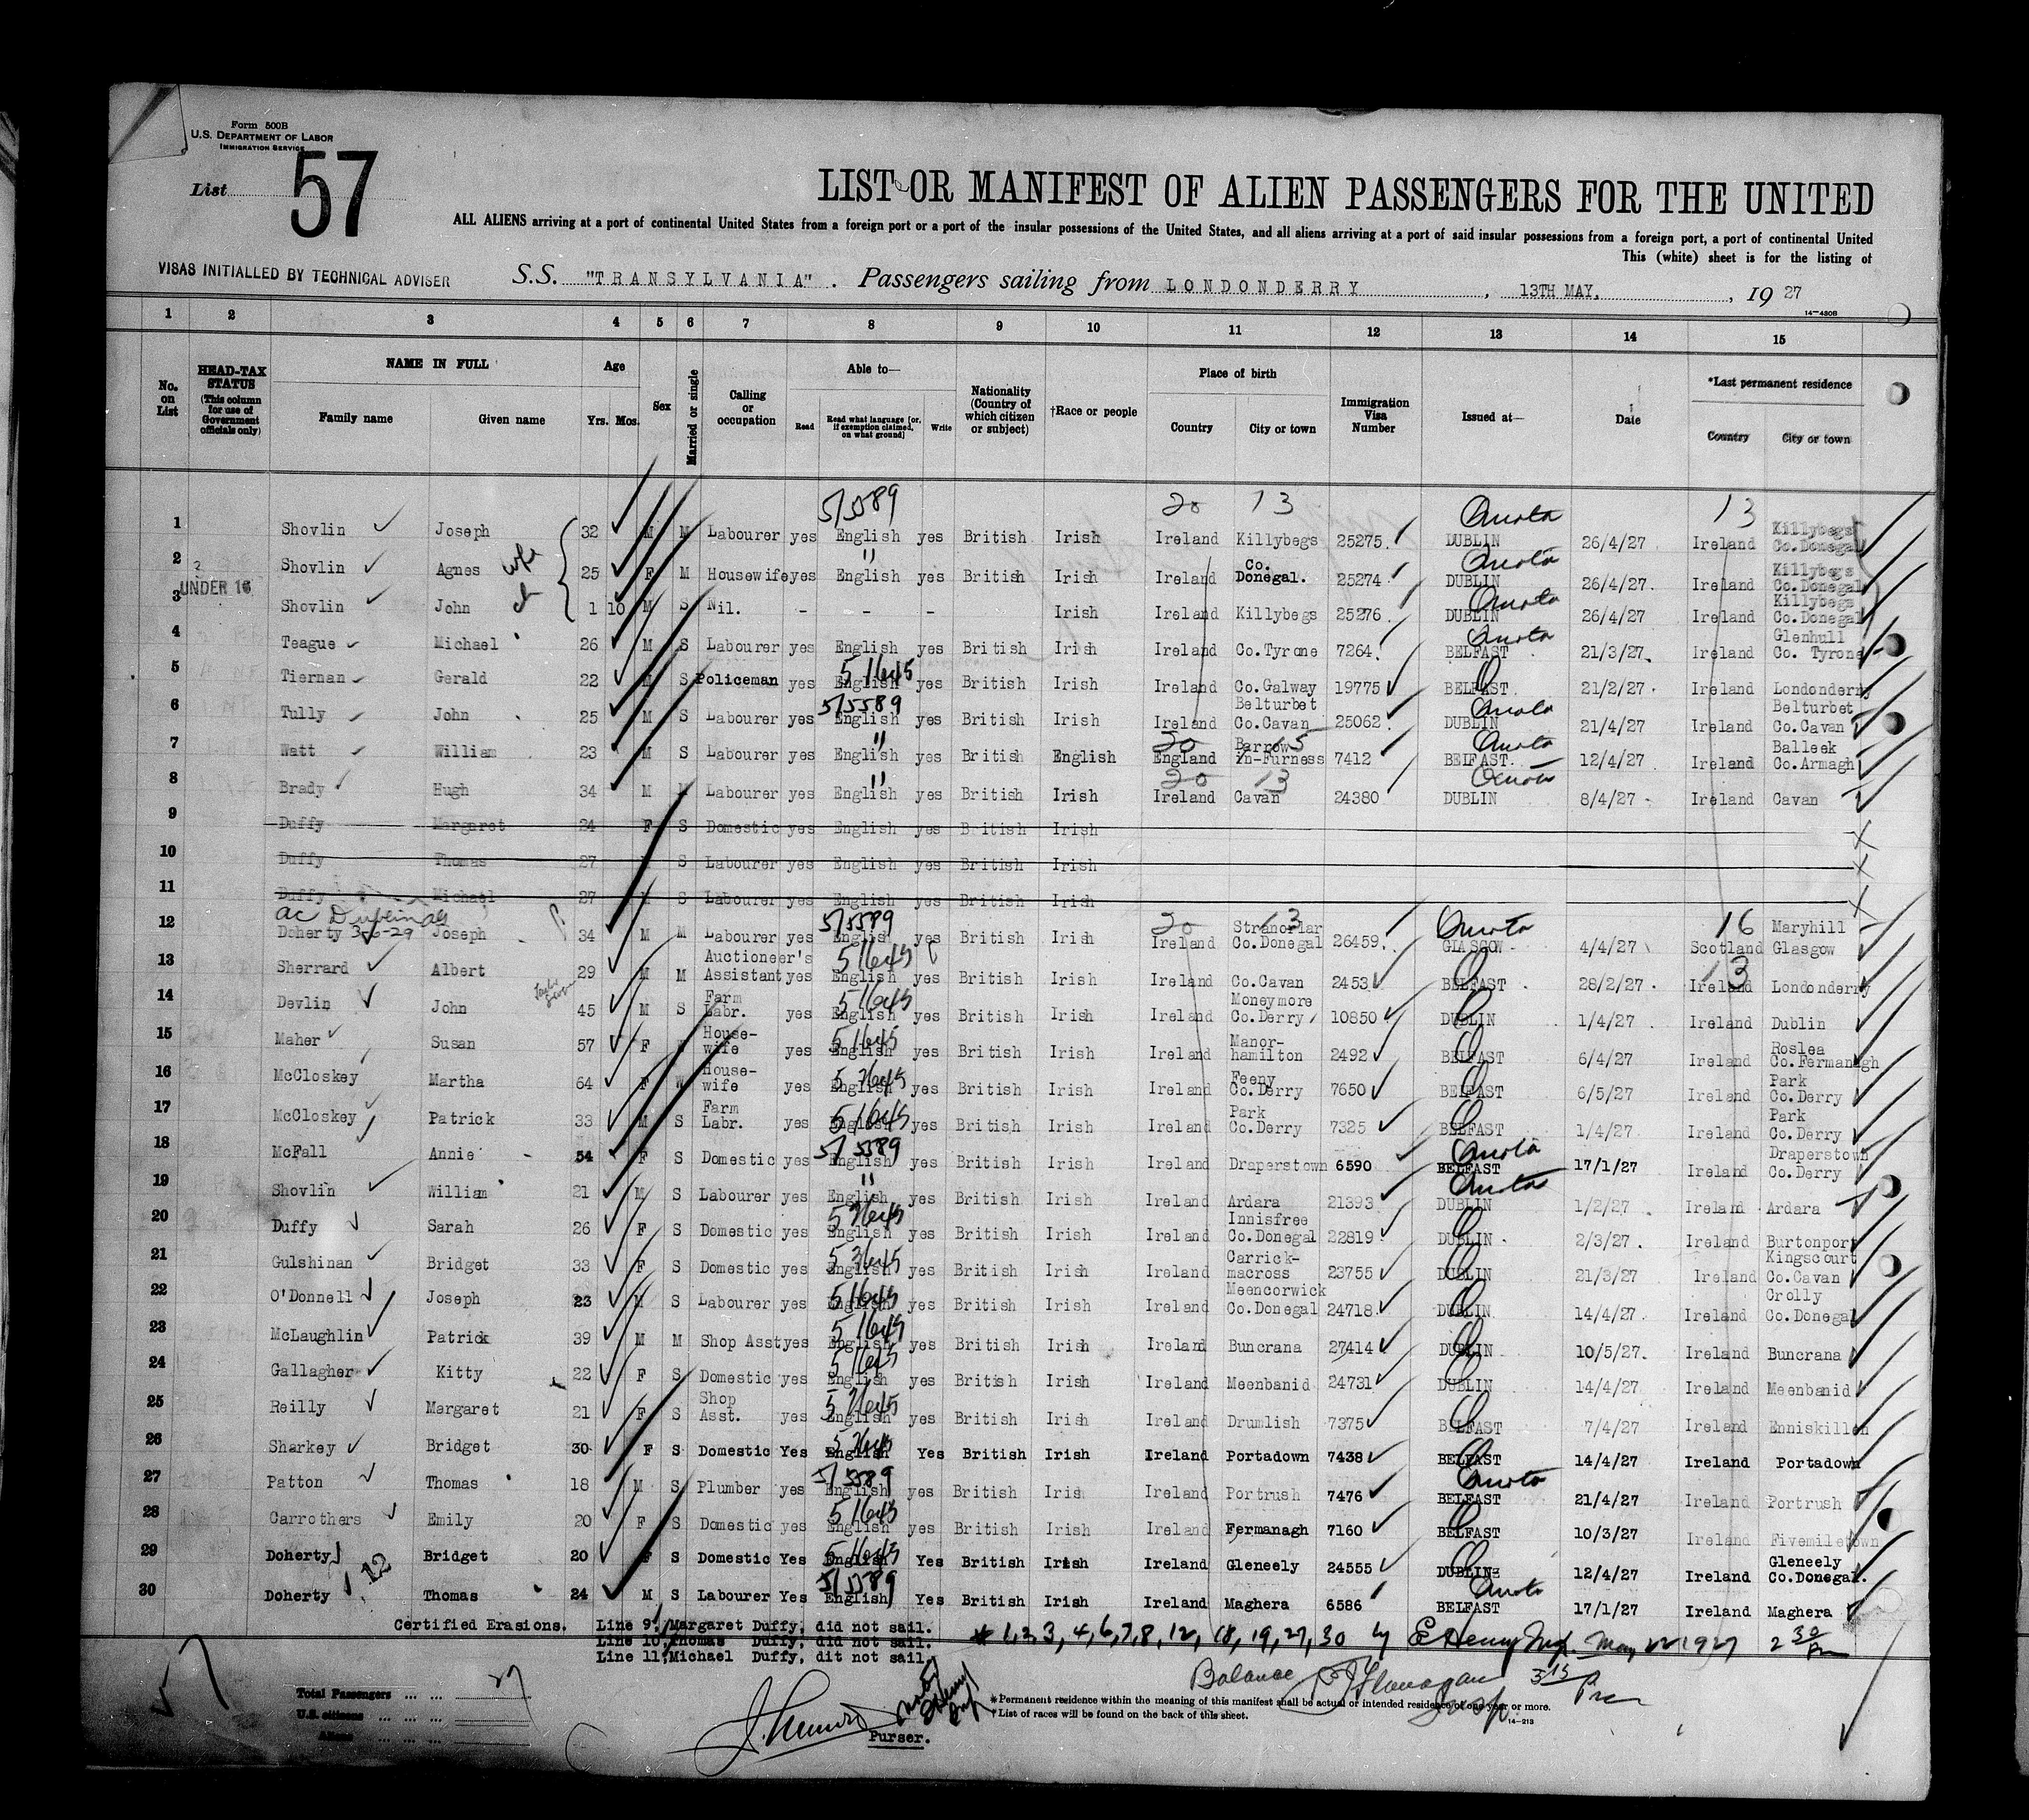 Form 500B
U.S. DEPARTMENT OF LABOR
IMMIGRATION SERVICE
List 57
LIST OR MANIFEST OF ALIEN PASSENGERS FOR THE UNITED
ALL ALIENS arriving at a port of continental United States from a foreign port or a port of the insular possessions of the United States, and all aliens arriving at a port of said insular possessions from a foreign port, a port of continental United
This (white) sheet is for the listing of
VISAS INITIALLED BY TECHNICAL ADVISER
S.S. "TRANSYLVANIA". Passengers sailing from LONDONDERRY, 13TH MAY, 1927
14-430B
1 2 3 4 5 6 7 8 9 10 11 12 13 14 15
No. on List
HEAD-TAX STATUS (This column for use of Government officials only)
NAME IN FULL
Family name Given name
Age Yrs. Mos.
Sex
Married or single
Calling or occupation
Able to—
Read Read what language [or, if exemption claimed, on what ground] Write
Nationality (Country of which citizen or subject)
†Race or people
Place of birth
Country City or town
Immigration Visa Number
Issued at—
Date
*Last permanent residence
Country City or town
5/5589 20 13 Quota 13
1 Shovlin Joseph 32 M M Labourer yes English yes British Irish Ireland Killybegs 25275 DUBLIN 26/4/27 Ireland Killybegs Co.Donegal
2 Shovlin Agnes wfe 25 F M Housewife yes English yes British Irish Ireland Co. Donegal. 25274 Quota DUBLIN 26/4/27 Ireland Killybegs Co.Donegal
UNDER 16
3 Shovlin John ch 1 10 M S Nil. - - - Irish Ireland Killybegs 25276 Quota DUBLIN 26/4/27 Ireland Killybegs Co.Donegal
4 Teague Michael 26 M S Labourer yes English yes British Irish Ireland Co.Tyrone 7264 Quota BELFAST 21/3/27. Ireland Glenhull Co. Tyrone
5 Tiernan Gerald 22 M S Policeman yes English 51645 yes British Irish Ireland Co.Galway 19775 BELFAST 21/2/27 Ireland Londonderry
6 Tully John 25 M S Labourer yes English 5/5589 yes British Irish Ireland Belturbet Co.Cavan 25062 Quota DUBLIN 21/4/27 Ireland Belturbet Co.Cavan
7 Watt William 23 M S Labourer yes English yes British English England 20 Barrow In-Furness 15 7412 Quota BELFAST. 12/4/27 Ireland Balleek Co.Armagh
8 Brady Hugh 34 M M Labourer yes English yes British Irish Ireland 20 Cavan 13 24380 Quota DUBLIN 8/4/27 Ireland Cavan
9 Duffy Margaret 24 F S Domestic yes English yes British Irish
10 Duffy Thomas 27 S Labourer yes English yes British Irish
11 Duffy Michael 27 M S Labourer yes English yes British Irish
12 Doherty Joseph 34 M M Labourer yes English 5/5589 yes British Irish Ireland 20 Stranorlar Co.Donegal 13 26459. Quota GLASGOW 4/4/27 Scotland 16 Maryhill Glasgow
13 Sherrard Albert 29 M M Auctioneer's Assistant yes English 51645 yes British Irish Ireland Co.Cavan 2453 BELFAST 28/2/27 Ireland 13 Londonderry
14 Devlin John 45 M S Farm Labr. yes English 51645 yes British Irish Ireland Moneymore Co.Derry 10850 DUBLIN 1/4/27 Ireland Dublin
15 Maher Susan 57 F House-wife yes English 51645 yes British Irish Ireland Manor-hamilton 2492 BELFAST 6/4/27 Ireland Roslea Co.Fermanagh
16 McCloskey Martha 64 F W House-wife yes English yes British Irish Ireland Feeny Co.Derry 7650 BELFAST 6/5/27 Ireland Park Co.Derry
17 McCloskey Patrick 33 M S Farm Labr. yes English 51645 yes British Irish Ireland Park Co.Derry 7325 BELFAST 1/4/27 Ireland Park Co.Derry
18 McFall Annie 54 F S Domestic yes English 5/5589 yes British Irish Ireland Draperstown 6590 Quota BELFAST 17/1/27 Ireland Draperstown Co.Derry
19 Shovlin William 21 M S Labourer yes English yes British Irish Ireland Ardara 21393 Quota DUBLIN 1/2/27 Ireland Ardara
20 Duffy Sarah 26 F S Domestic yes English yes British Irish Ireland Innisfree Co.Donegal 22819 DUBLIN 2/3/27. Ireland Burtonport
21 Gulshinan Bridget 33 F S Domestic yes English yes British Irish Ireland Carrick-macross 23755 DUBLIN 21/3/27 Ireland Kingscourt Co.Cavan
22 O'Donnell Joseph 23 M S Labourer yes English 51645 yes British Irish Ireland Meencorwick Co.Donegal 24718 DUBLIN 14/4/27 Ireland Crolly Co.Donegal
23 McLaughlin Patrick 39 M M Shop Asst yes English 51645 yes British Irish Ireland Buncrana 27414 DUBLIN 10/5/27. Ireland Buncrana
24 Gallagher Kitty 22 F S Domestic yes English 51645 yes British Irish Ireland Meenbanid 24731 DUBLIN 14/4/27 Ireland Meenbanid
25 Reilly Margaret 21 F S Shop Asst. yes English yes British Irish Ireland Drumlish 7375 BELFAST 7/4/27 Ireland Enniskillen
26 Sharkey Bridget 30 F S Domestic Yes English Yes British Irish Ireland Portadown 7438 BELFAST 14/4/27 Ireland Portadown
27 Patton Thomas 18 M S Plumber yes English 5/5589 yes British Iris Ireland Portrush 7476 Quota BELFAST 21/4/27 Ireland Portrush
28 Carrothers Emily 20 F S Domestic yes English 51645 yes British Irish Ireland Fermanagh 7160 BELFAST 10/3/27 Ireland Fivemiletown
29 Doherty Bridget 20 F S Domestic Yes English 51645 Yes British Irish Ireland Gleneely 24555 DUBLIN 12/4/27 Ireland Gleneely Co.Donegal.
30 Doherty 12 Thomas 24 M S Labourer Yes English 5/5589 Yes British Irish Ireland Maghera 6586 Quota BELFAST 17/1/27 Ireland Maghera
Certified Erasions. Line 9, Margaret Duffy, did not sail.
Line 10, Thomas Duffy, did not sail.
Line 11, Michael Duffy, dit not sail.
* 1,2,3,4,6,7,8,12,18,19,27,30 by May 22 1927 2 30 Pm
Balance 3 15 Pm
Insp.
Total Passengers ... ... 27
U.S. citizens ... ... ...
Aliens ... ... ...
Purser.
*Permanent residence within the meaning of this manifest shall be actual or intended residence of one year or more.
†List of races will be found on the back of this sheet.
14-213